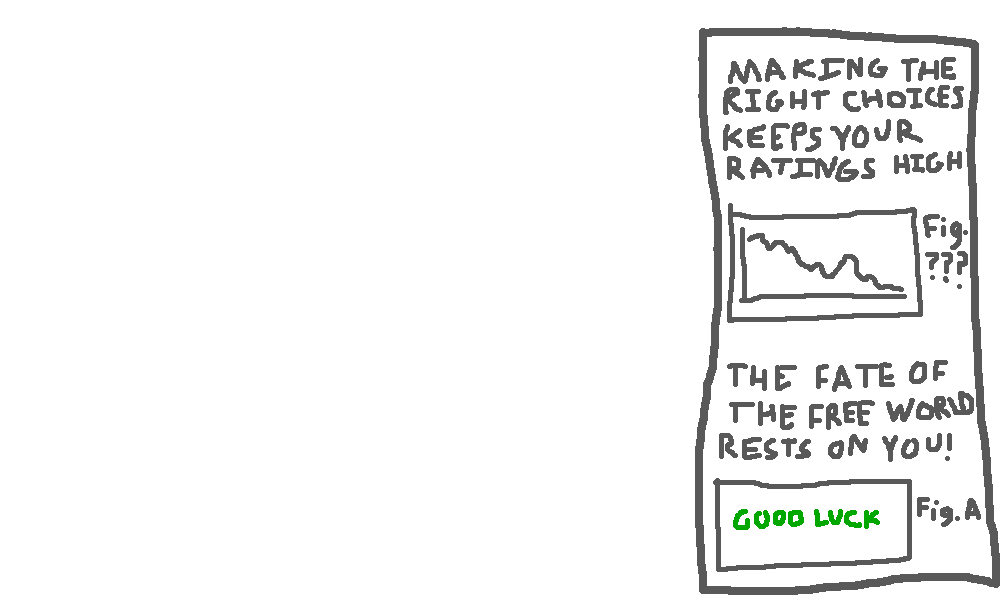 MAKING THE
RIGHT CHOICES
KEEPS YOUR
RATINGS HIGH
Fig.
???
THE FATE OF
THE FREE WORLD
RESTS ON YOU!
GOOD LUCK
Fig. A